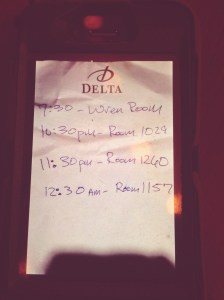 DELTA
7:30 - Wren Room
10:30pm - Room 1029
11:30pm - Room 1260
12:30 AM - Room 1157